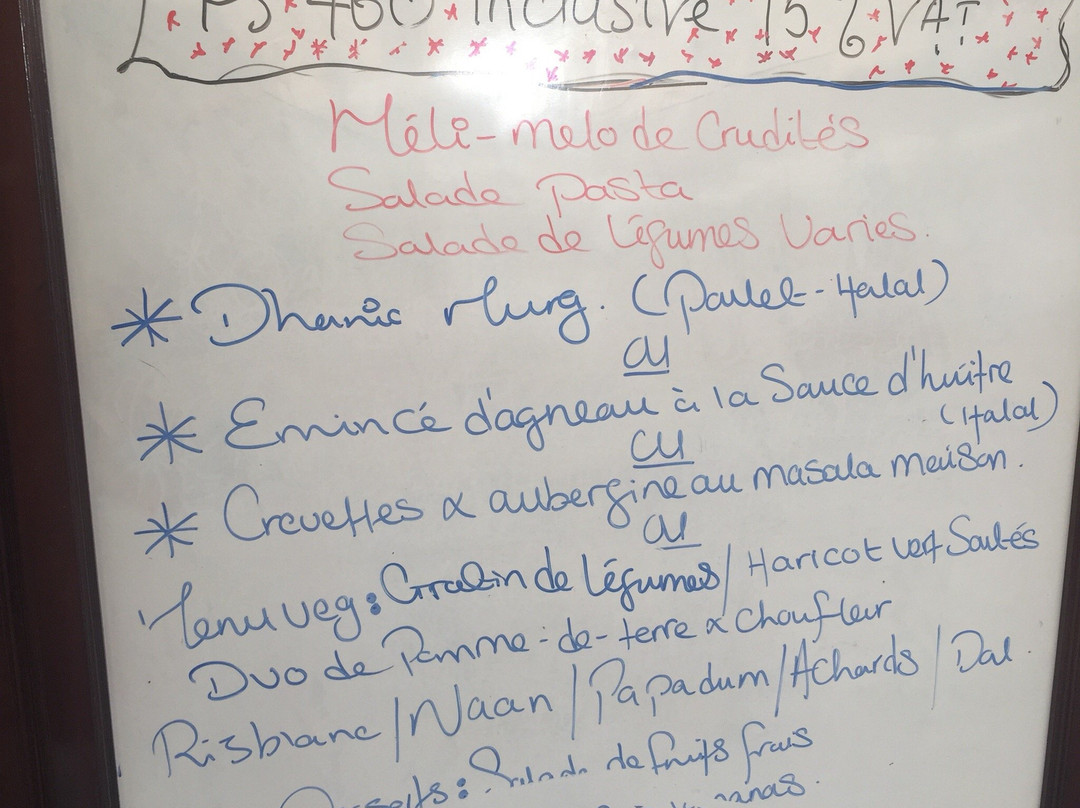 Inclusive 15% VAT
Méli-melo de Crudités
Salade Pasta
Salade de légumes Varies.
* Dhania Murg. (Poulet-Halal)
ou
* Emincé d'agneau à la Sauce d'huître
(Halal)
ou
* Crevettes & aubergine au masala maison.
ou
Menu veg: Gratin de légumes/Haricot vert Sautés
Duo de Pomme-de-terre & choufleur
Rizblanc/Naan/Papadum/Achards/Dal.
Salade de fruits frais